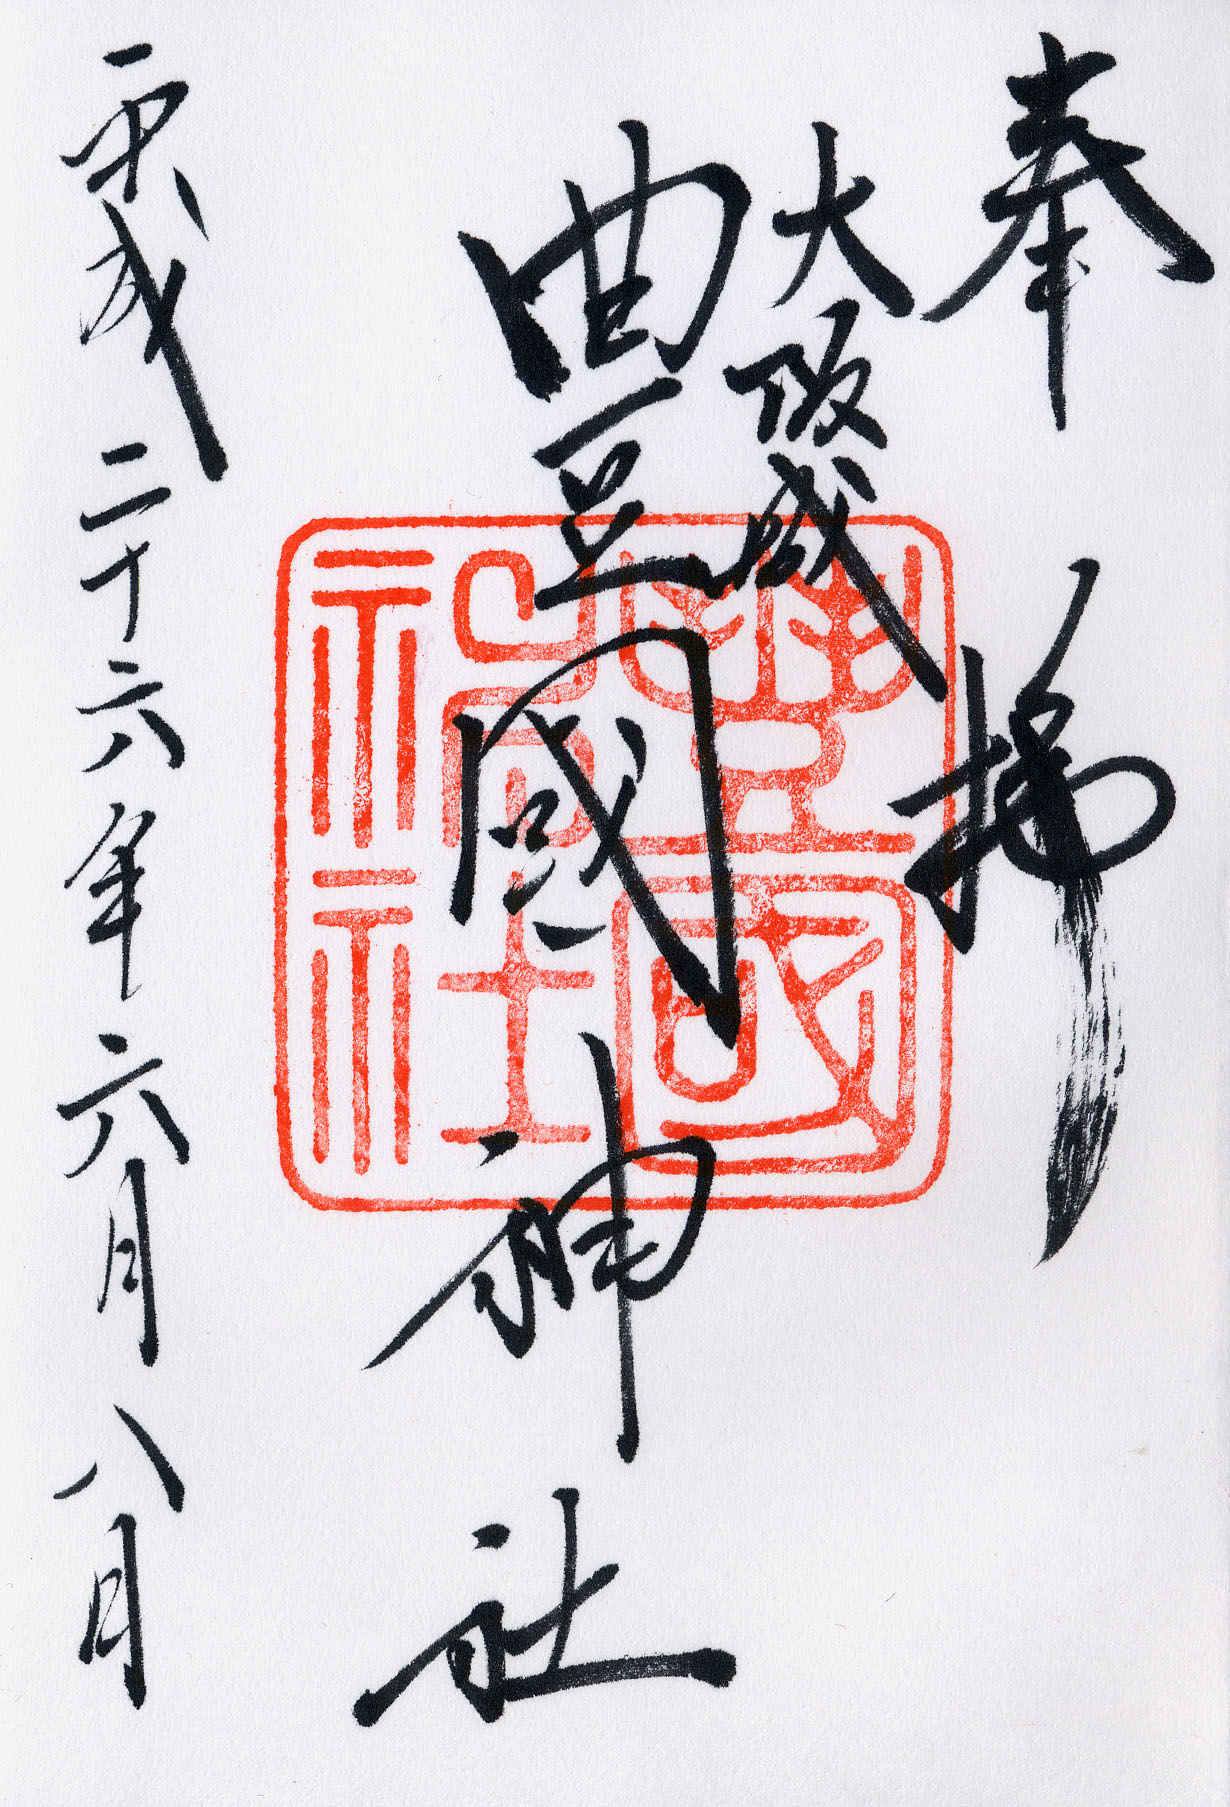 奉拝
大阪城
豊國神社
平成二十六年六月八日
豊國神社